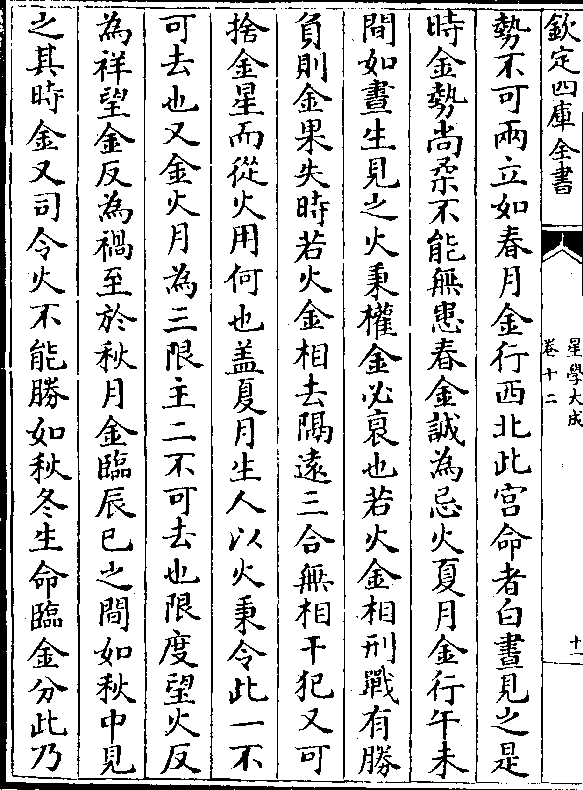 欽定四庫全書
星學大成
卷十二
十一
勢不可兩立如春月金行西北此宮命者白晝見之是
時金勢尚柔不能無患春金誠為忌火夏月金行午未
間如晝生見之火秉權金必衰也若火金相刑戰有勝
負則金果失時若火金相去隔遠三合無相干犯又可
捨金星而從火用何也盖夏月生人以火秉令此一不
可去也又金火月為三限主二不可去也限度望火反
為祥望金反為禍至於秋月金臨辰巳之間如秋中見
之其時金又司令火不能勝如秋冬生命臨金分此乃